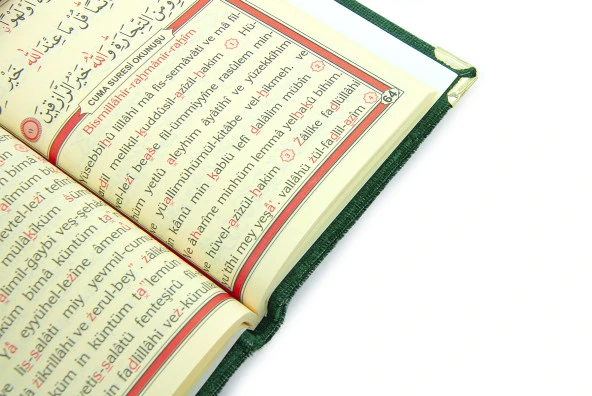 قُلْ مَا عِنْدَ اللّٰهِ خَيْرٌ
وَمِنَ التِّجَارَةِ وَاللّٰهُ خَيْرُ الرَّازِقِينَ
CUMA SURESİ OKUNUŞU
Bismillâhir-rahmânir-rahîm
yüsebbihû lillâhi mâ fis-semâvâti ve mâ fil-
melikül-kuddûsil-azîzil-hakîm 1 Hü-
vel-lezî bease fil-ümmiyyîne rasûlem min-
hüm yetlû aleyhim âyâtihî ve yüzekkîhim
ve yüallimühümül-kitâbe vel-hikmeh. ve
in kânû min kablü lefî dalâlim mübîn 2
ve âharîne minhüm lemmâ yelhakû bihim.
ve hüvel-azîzül-hakîm 3 Zâlike fadlüllâhi
yu'tîhi mey yeşâ' vallâhü zül-fadlil-azîm 4
64
alimîm bi
evtel-lezî tefirr
mülâkîküm süm
alimil-ğaybi veş-şehâ
küm bimâ küntüm ta'
Yâ eyyühel-lezîne âmenû
lis-salâti miy yevmil-cumu
zikrillâhi ve zerul-bey'. zâlik
küm in küntüm ta'lemûn
yetis-salâtü fenteşirû fil
in fadlillâhi vez-kürullâ